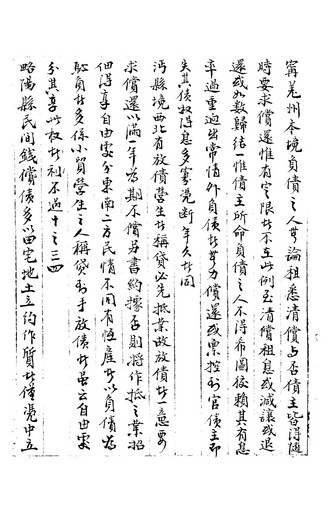 寧羌州本境負債之人無論祖悉清償与否債主皆得隨
時要求償還惟有定之限者不在此例至清償租息或減讓或退
還或如數歸結一惟債主所命負債之人不得希圖狡賴其有息
率過重逾出常情外負債者無力償還或稟控到官債主即
失其債權得息多寡視斷年久者同
沔縣境西北有放債營生者稱貸必先抵業故放債者一意要
求償還以滿一年為期不償另書約據否則將作抵之業招
佃得享自由處分東南二方民情不同有恆產者以負債為
恥負債者多係小貿營生之人稱貸到手放債者虽云自由處
分其享此權者初不過十之三四
略陽縣民間錢債多以田宅地土立約作質者僅憑中立